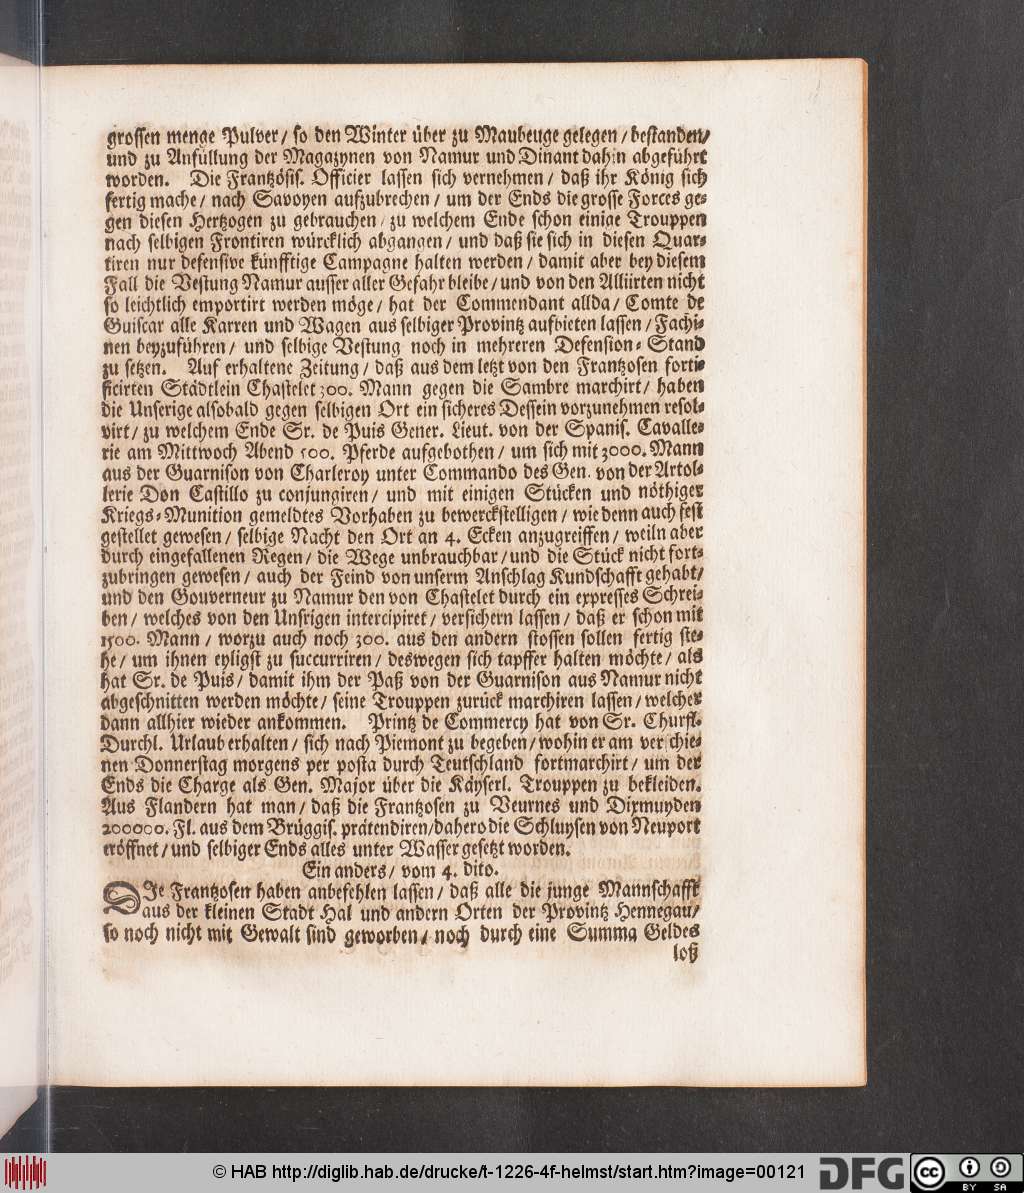 grossen menge Pulver / so den Winter über zu Maubeuge gelegen / bestanden /
und zu Anfüllung der Magazynen von Namur und Dinant dahin abgeführt
worden. Die Frantzösis. Officier lassen sich vernehmen / daß ihr König sich
fertig mache / nach Savoyen aufzubrechen / um der Ends die grosse Forces ge-
gen diesen Hertzogen zu gebrauchen / zu welchem Ende schon einige Trouppen
nach selbigen Frontiren würcklich abgangen / und daß sie sich in diesen Quar-
tiren nur defensive künfftige Campagne halten werden / damit aber bey diesem
Fall die Vestung Namur ausser aller Gefahr bleibe / und von den Alliirten nicht
so leichtlich emportirt werden möge / hat der Commendant allda / Comte de
Guiscar alle Karren und Wagen aus selbiger Provintz aufbieten lassen / Fachi-
nen beyzuführen / und selbige Vestung noch in mehreren Defension-Stand
zu setzen. Auf erhaltene Zeitung / daß aus dem letzt von den Frantzosen forti-
ficirten Städtlein Chastelet 300. Mann gegen die Sambre marchirt / haben
die Unserige alsobald gegen selbigen Ort ein sicheres Dessein vorzunehmen resol-
virt / zu welchem Ende Sr. de Puis Gener. Lieut. von der Spanis. Cavalle-
rie am Mittwoch Abend 500. Pferde aufgebothen / um sich mit 3000. Mann
aus der Guarnison von Charleroy unter Commando des Gen. von der Artol-
lerie Don Castillo zu conjungiren / und mit einigen Stücken und nöthiger
Kriegs-Munition gemeldtes Vorhaben zu bewerckstelligen / wie denn auch fest
gestellet gewesen / selbige Nacht den Ort an 4. Ecken anzugreiffen / weiln aber
durch eingefallenen Regen / die Wege unbrauchbar / und die Stück nicht fort-
zubringen gewesen / auch der Feind von unserm Anschlag Kundschafft gehabt /
und den Gouverneur zu Namur den von Chastelet durch ein expresses Schrei-
ben / welches von den Unsrigen intercipiret / versichern lassen / daß er schon mit
1500. Mann / worzu auch noch 300. aus den andern stossen sollen fertig ste-
he / um ihnen eyligst zu succurriren / deswegen sich tapffer halten möchte / als
hat Sr. de Puis / damit ihm der Paß von der Guarnison aus Namur nicht
abgeschnitten werden möchte / seine Trouppen zurück marchiren lassen / welche
dann allhier wieder ankommen. Printz de Commercy hat von Sr. Churfl.
Durchl. Urlaub erhalten / sich nach Piemont zu begeben / wohin er am verschie-
nen Donnerstag morgens per posta durch Teutschland fortmarchirt / um der
Ends die Charge als Gen. Major über die Käyserl. Trouppen zu bekleiden.
Aus Flandern hat man / daß die Frantzosen zu Veurnes und Dixmuyden
200000. Fl. aus dem Brüggis. prätendiren / dahero die Schluysen von Neuport
eröffnet / und selbiger Ends alles unter Wasser gesetzt worden.
Ein anders / vom 4. dito.
DIe Frantzosen haben anbefehlen lassen / daß alle die junge Mannschafft
aus der kleinen Stadt Hal und andern Orten der Provintz Hennegau /
so noch nicht mit Gewalt sind geworben / noch durch eine Summa Geldes
loß
© HAB http://diglib.hab.de/drucke/t-1226-4f-helmst/start.htm?image=00121
DFG
cc
BY SA